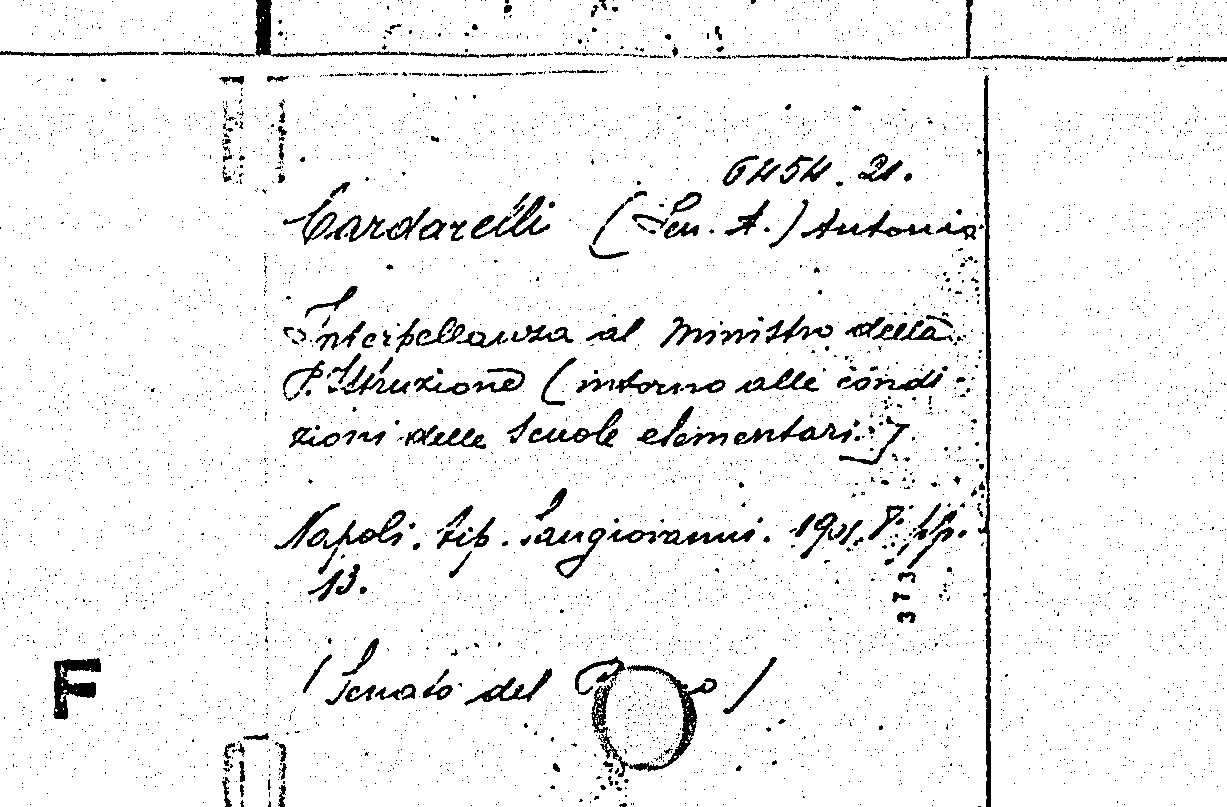 6454. 21.
Cardarelli (Sen. A.) Antonio
Interpellanza al Ministro della
P. Istruzione (intorno alle condi-
zioni delle Scuole elementari.)
Napoli. tip. Sangiovanni. 1901. 8° pp.
13.
373
(Senato del
F